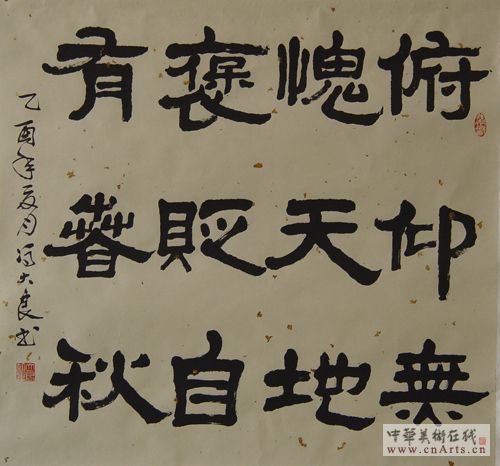 俯仰無
愧天地
褒貶自
有春秋
乙酉年夏月大良书
中華美術在线
www.cnArts.cn